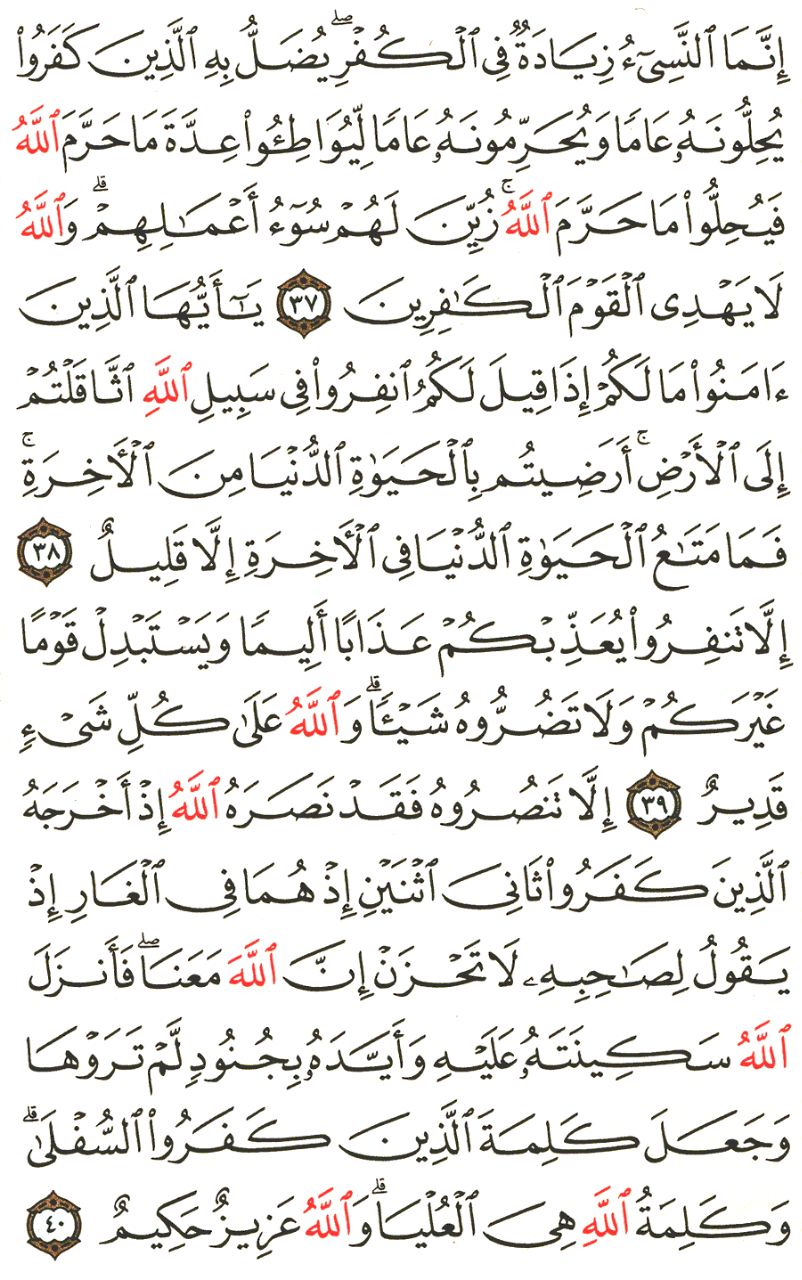 إِنَّمَا ٱلنَّسِىٓءُ زِيَادَةٌ فِى ٱلْكُفْرِ ۖ يُضَلُّ بِهِ ٱلَّذِينَ كَفَرُوا۟
يُحِلُّونَهُۥ عَامًا وَيُحَرِّمُونَهُۥ عَامًا لِّيُوَاطِـُٔوا۟ عِدَّةَ مَا حَرَّمَ ٱللَّهُ
فَيُحِلُّوا۟ مَا حَرَّمَ ٱللَّهُ ۚ زُيِّنَ لَهُمْ سُوٓءُ أَعْمَـٰلِهِمْ ۗ وَٱللَّهُ
لَا يَهْدِى ٱلْقَوْمَ ٱلْكَـٰفِرِينَ ٣٧ يَـٰٓأَيُّهَا ٱلَّذِينَ
ءَامَنُوا۟ مَا لَكُمْ إِذَا قِيلَ لَكُمُ ٱنفِرُوا۟ فِى سَبِيلِ ٱللَّهِ ٱثَّاقَلْتُمْ
إِلَى ٱلْأَرْضِ ۚ أَرَضِيتُم بِٱلْحَيَوٰةِ ٱلدُّنْيَا مِنَ ٱلْـَٔاخِرَةِ ۚ
فَمَا مَتَـٰعُ ٱلْحَيَوٰةِ ٱلدُّنْيَا فِى ٱلْـَٔاخِرَةِ إِلَّا قَلِيلٌ ٣٨
إِلَّا تَنفِرُوا۟ يُعَذِّبْكُمْ عَذَابًا أَلِيمًا وَيَسْتَبْدِلْ قَوْمًا
غَيْرَكُمْ وَلَا تَضُرُّوهُ شَيْـًٔا ۗ وَٱللَّهُ عَلَىٰ كُلِّ شَىْءٍ
قَدِيرٌ ٣٩ إِلَّا تَنصُرُوهُ فَقَدْ نَصَرَهُ ٱللَّهُ إِذْ أَخْرَجَهُ
ٱلَّذِينَ كَفَرُوا۟ ثَانِىَ ٱثْنَيْنِ إِذْ هُمَا فِى ٱلْغَارِ إِذْ
يَقُولُ لِصَـٰحِبِهِۦ لَا تَحْزَنْ إِنَّ ٱللَّهَ مَعَنَا ۖ فَأَنزَلَ
ٱللَّهُ سَكِينَتَهُۥ عَلَيْهِ وَأَيَّدَهُۥ بِجُنُودٍ لَّمْ تَرَوْهَا
وَجَعَلَ كَلِمَةَ ٱلَّذِينَ كَفَرُوا۟ ٱلسُّفْلَىٰ ۗ
وَكَلِمَةُ ٱللَّهِ هِىَ ٱلْعُلْيَا ۗ وَٱللَّهُ عَزِيزٌ حَكِيمٌ ٤٠